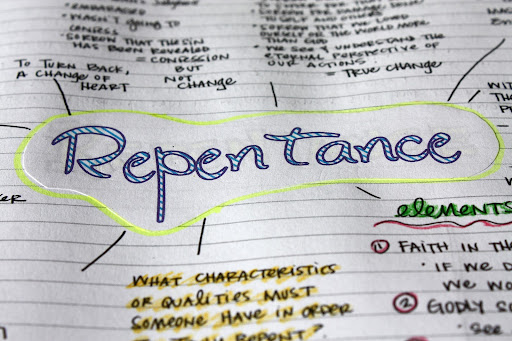 WASN'T GOING TO
CONFESS
SORROW THAT THE SIN
HAS BEEN REVEALED
= CONFESSION
BUT
NOT
CHANGE
TO TURN BACK,
A CHANGE OF
HEART
TO SELF AND
THAT WE LOVED
OURSELF OR THE WORLD MORE
THAN GOD
WE SEE & UNDERSTAND THE
ETERNAL PERSPECTIVE OF
OUR ACTIONS.
= TRUE CHANGE
WIT
THE
Repentance
WHAT CHARACTERISTICS
OR QUALITIES MUST
SOMEONE HAVE IN ORDER
TO TRULY REPENT?
elements
① FAITH IN TH
· IF WE D
WE WO
② GODLY SO
· SEE